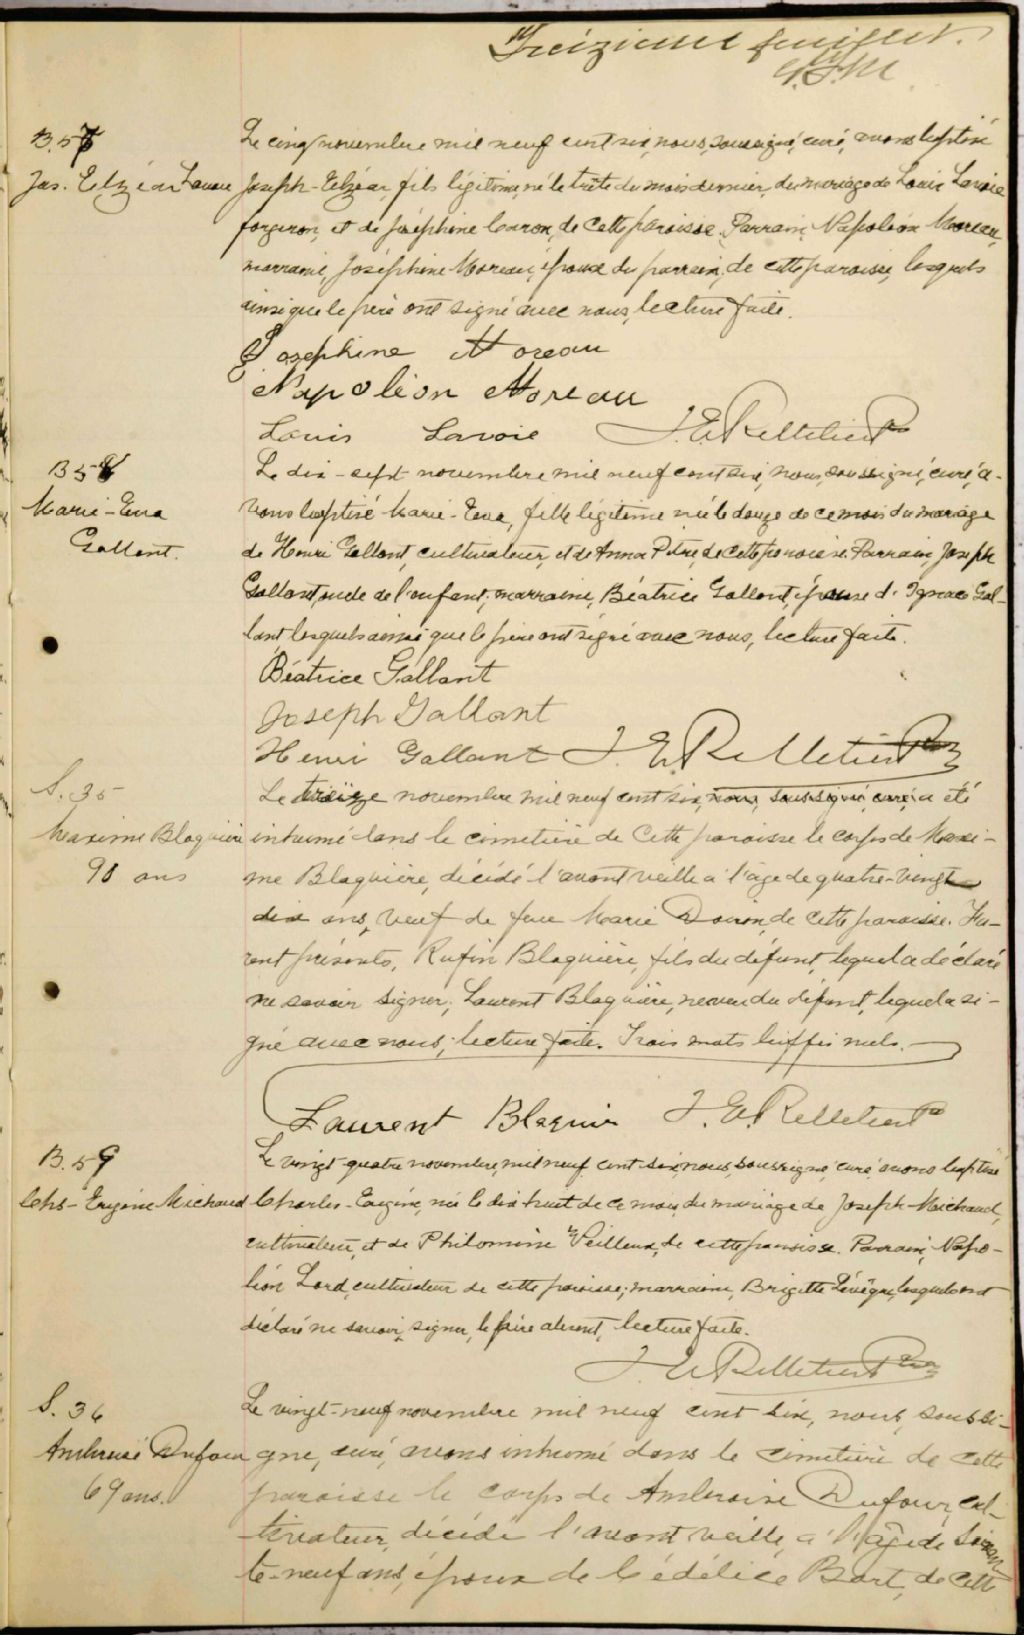 Treizième feuillet.
B. 57
Jos. Elzéar Lavoie
Le cinq novembre mil neuf cent six, nous, soussigné, curé, avons baptisé
Joseph-Elzéar, fils légitime, né le trente du mois dernier, du mariage de Louis Lavoie
forgeron, et de Joséphine Caron, de cette paroisse. Parrain, Napoléon Moreau,
marraine, Joséphine Moreau, épouse du parrain, de cette paroisse, lesquels
ainsi que le père ont signé avec nous, lecture faite.
Josephine Moreau
Napoléon Moreau
Louis Lavoie J. E. Pelletier Ptre
B 58
Marie-Eva
Gallant.
Le dix-sept novembre mil neuf cent six, nous, soussigné, curé, a-
vons baptisé Marie-Eva, fille légitime née le douze de ce mois du mariage
de Henri Gallant, cultivateur, et de Anna Pitre, de cette paroisse. Parrain, Joseph
Gallant, oncle de l'enfant; marraine, Béatrice Gallant, épouse d'Ignace Gal-
lant lesquels ainsi que le père ont signé avec nous, lecture faite.
Béatrice Gallant
Joseph Gallant
Henri Gallant J. E. Pelletier Ptre
S. 35
Maxime Blaquière
90 ans
Le treize novembre mil neuf cent six, nous, soussigné, curé, a été
inhumé dans le cimetière de cette paroisse le corps de Maxi-
me Blaquière, décédé l'avant veille à l'âge de quatre-vingt
dix ans, veuf de feue Marie Doiron, de cette paroisse. Fu-
rent présents, Rufin Blaquière, fils du défunt, lequel a déclaré
ne savoir signer; Laurent Blaquière, neveu du défunt, lequel a si-
gné avec nous; lecture faite. Trois mots biffés nuls.
Laurent Blaquier J. E. Pelletier Ptre
B. 59
Chs-Eugène Michaud
Le vingt-quatre novembre, mil neuf cent six, nous, soussigné, curé, avons baptisé
Charles-Eugène, né le dix huit de ce mois, du mariage de Joseph Michaud,
cultivateur, et de Philomène Veilleux, de cette paroisse. Parrain, Napo-
léon Lord, cultivateur de cette paroisse; marraine, Brigitte Lévêque, lesquels ont
déclaré ne savoir signer, le père absent, lecture faite.
J. E. Pelletier Ptre
S. 36
Ambroise Dufour
69 ans.
Le vingt-neuf novembre mil neuf cent six, nous, soussi-
gné, curé, avons inhumé dans le cimetière de cette
paroisse le corps de Ambroise Dufour, cul-
tivateur, décédé l'avant veille, à l'âge de soixan
te-neuf ans, époux de Cédélice Bart, de cette